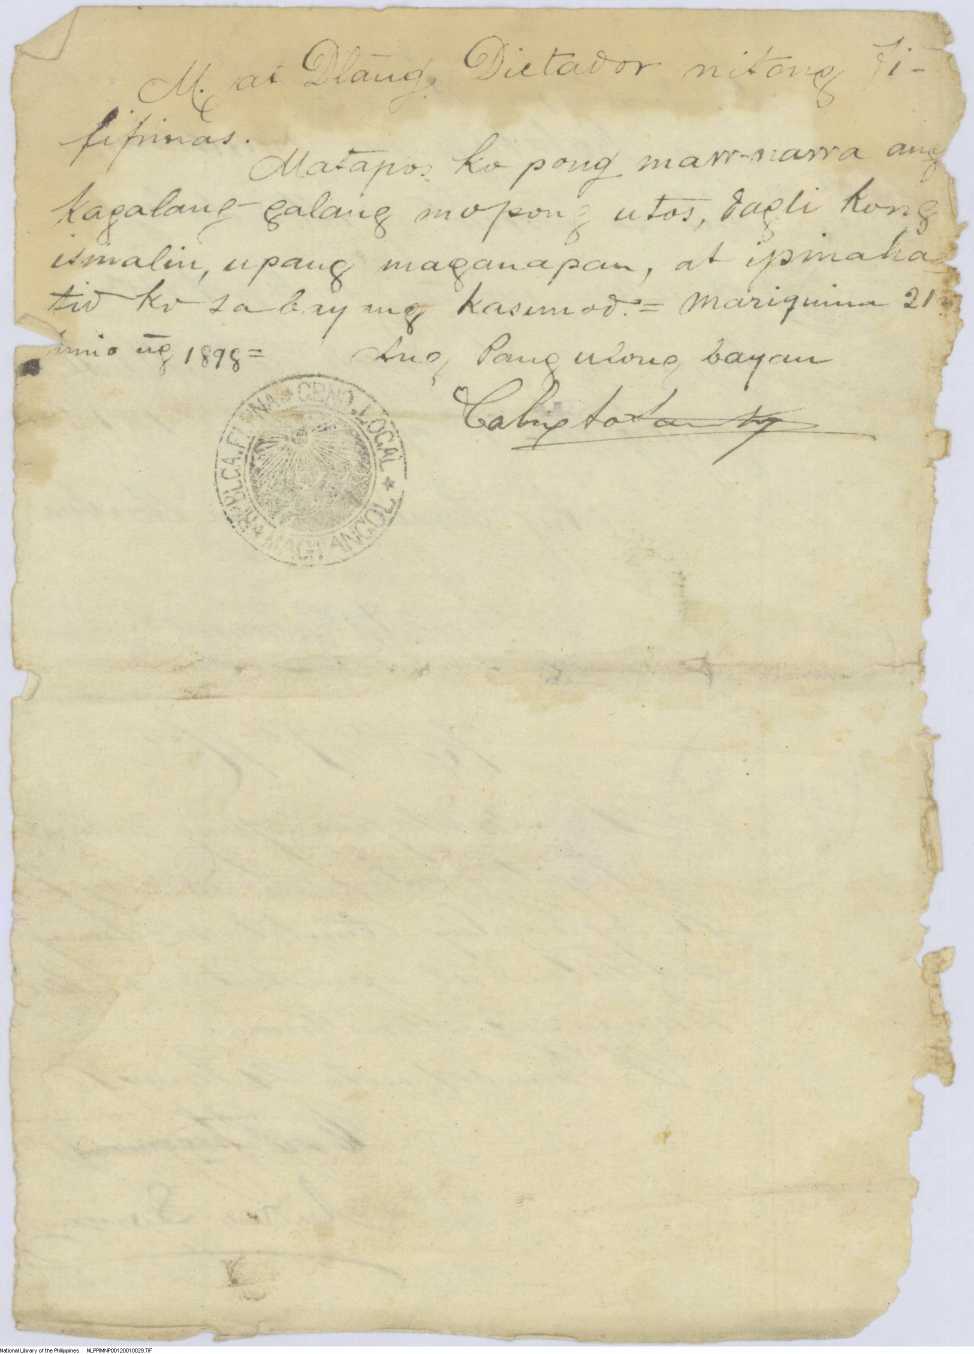 M. at Dlang̃. Dictador nitong Fi-
lipinas.
Matapos ko pong marr-narra ang
kagalang-galang mopong utos, dagli kong
ismalin, upang maganapan, at ipinaha-
tid ko sa bayang Kasunod.= Mariquina 21
Junio ng̃ 1898=
Ang Pang ulong bayan
REPBLCA. FLPNA. GBNO. LOCAL
MAGH ANGOL
National Library of the Philippines NLPPIMNP00120010029.TIF